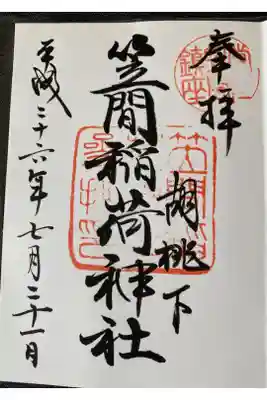 奉拝
鎮座
胡桃下
笠間稲荷神社
平成二十六年七月二十一日